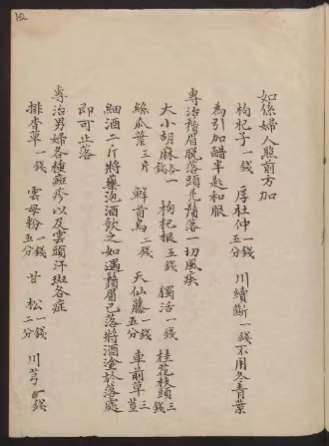 如係婦人照前方加
枸杞子一錢 厚杜仲一錢五分 川續斷一錢 不用冬青葉
為引加醋半匙和服
專治鬚眉脫落頭禿鬚落一切風疾
大小胡麻各一錢 枸杞根五錢 獨活一錢 桂花枝頭三錢
絲瓜葉三片 鮮首烏二錢 天仙藤一錢五分 車前草
細酒二斤將藥泡酒飲之如遇鬚眉已落將酒塗於落處
即可止落
專治男婦各種癍疹以及雲頭汗斑各症
排香草一錢 雲母粉一錢五分 甘松一錢二分 川芎錢